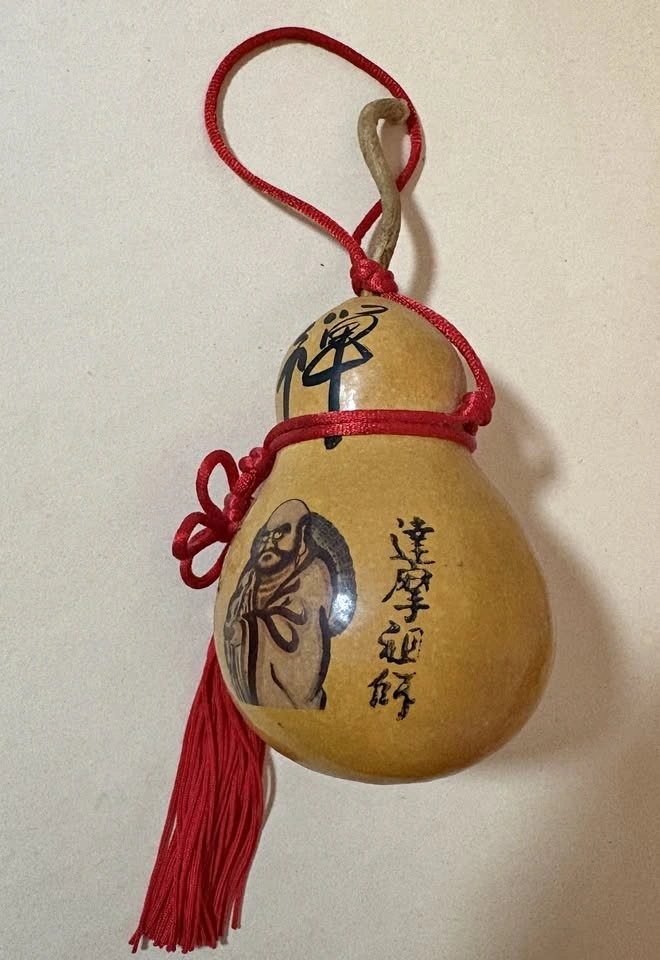 禪
達摩祖師